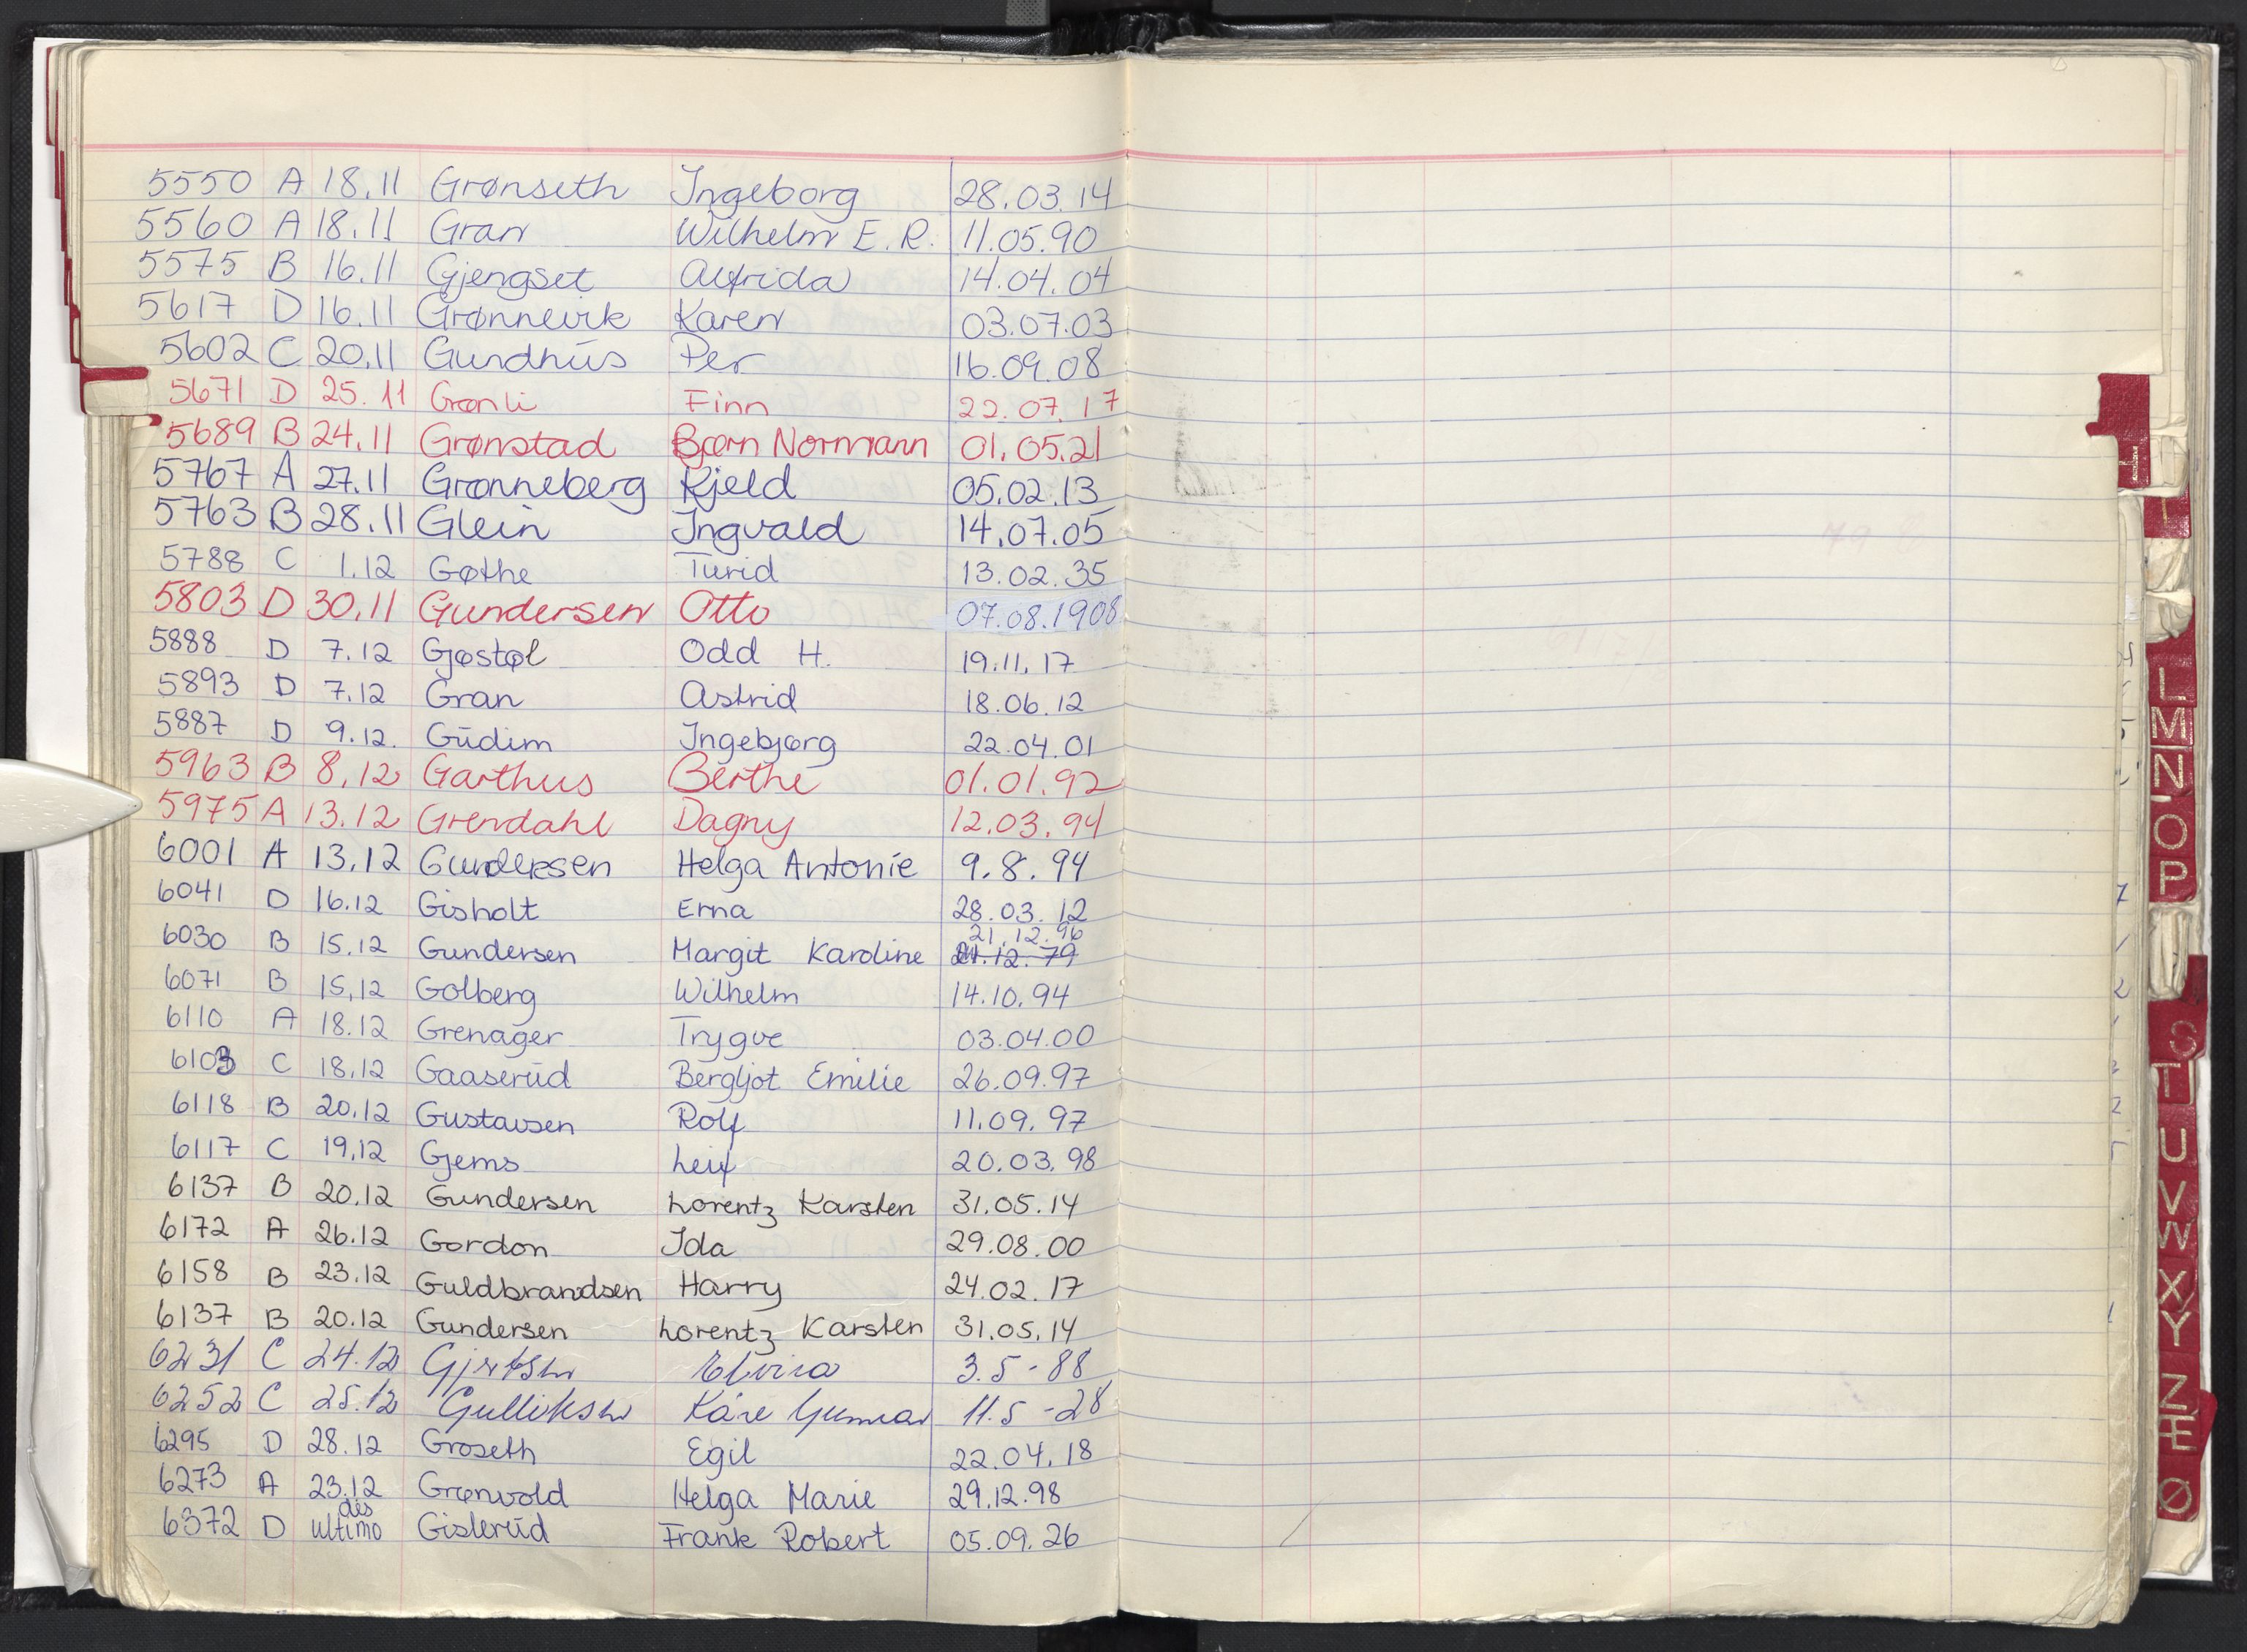 5550 A 18.11 Grønseth Ingeborg 28.03.14
5560 A 18.11 Gran Wilhelm E.R. 11.05.90
5575 B 16.11 Gjengset Alfrida 14.04.04
5617 D 16.11 Grønnevik Karen 03.07.03
5602 C 20.11 Gundhus Per 16.09.08
5671 D 25.11 Grønli Finn 22.07.17
5689 B 24.11 Grønstad Bjørn Normann 01.05.21
5767 A 27.11 Grønneberg Kjeld 05.02.13
5763 B 28.11 Glein Ingvald 14.07.05
5788 C 1.12 Gøthe Turid 13.02.35
5803 D 30.11 Gundersen Otto 07.08.1908
5888 D 7.12 Gjøstøl Odd H. 19.11.17
5893 D 7.12 Gran Astrid 18.06.12
5887 D 9.12. Gudim Ingebjørg 22.04.01
5963 B 8.12 Garthus Berthe 01.01.92
5975 A 13.12 Grendahl Dagny 12.03.94
6001 A 13.12 Gundersen Helga Antonie 9.8.94
6041 D 16.12 Gisholt Erna 28.03.12
21.12.96
6030 B 15.12 Gundersen Margit Karoline 21.12.79
6071 B 15.12 Golberg Wilhelm 14.10.94
6110 A 18.12 Grenager Trygve 03.04.00
6103 C 18.12 Gaaserud Bergljot Emilie 26.09.97
6118 B 20.12 Gustavsen Rolf 11.09.97
6117 C 19.12 Gjems Leif 20.03.98
6137 B 20.12 Gundersen Lorentz Karsten 31.05.14
6172 A 26.12 Gordon Ida 29.08.00
6158 B 23.12 Guldbrandsen Harry 24.02.17
6137 B 20.12 Gundersen Lorentz Karsten 31.05.14
6231 C 24.12 Elvira 3.5-88
6252 C 25.12 Gulliksen Kåre Gunnar 11.5-28
6295 D 28.12 Groseth Egil 22.04.18
6273 A 23.12 Grønvold Helga Marie 29.12.98
des
6372 D ultimo Gislerud Frank Robert 05.09.26
L
M
N
O
P
S
T
U
V
W
X
Y
Z
Æ
Ø